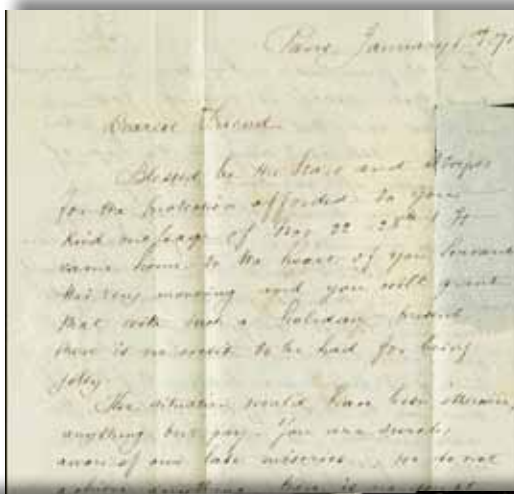 Paris January 1st 71
Dearest Friend
Blessed be the Stars and Stripes
for the protection afforded to your
kind message of Nov 22 28th & It
came home to the heart of your Servant
this very morning and you will grant
that with such a holiday present
there is no credit to be had for being
jolly.
The situation would have been otherwise
anything but gay. You are surely
aware of our late miseries. We do not
anything there is